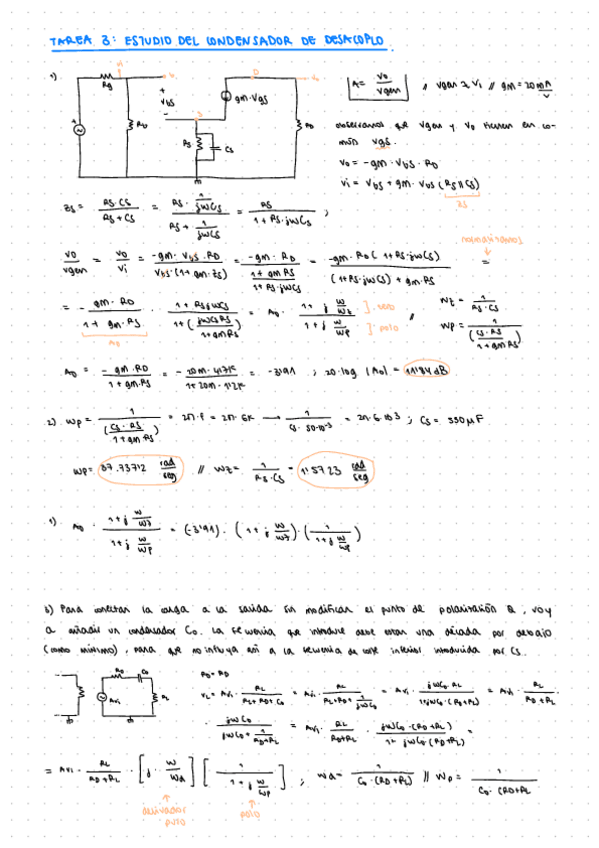 TAREA 3: ESTUDIO DEL CONDENSADOR DE DESACOPLO
1)
Rg
+
Vgs
-
gm·Vgs
D
S
RS
CS
RD
A = Vo/Vgen // Vgen ≈ Vi // gm = 20 mA/V
observamos que Vgen y Vo tienen en co-
mún Vgs.
Vo = -gm · Vgs · RD
Vi = Vgs + gm · Vgs (RS || CS)
ZS
ZS = RS·CS / RS+CS = RS · 1/jWCS / RS + 1/jWCS = RS / 1+RS·jWCS ;
normalizamos
Vo/Vgen = Vo/Vi = -gm·Vgs·RD / Vgs·(1+gm·ZS) = -gm·RD / 1 + gm RS / 1+RS·jWCS = -gm·RD (1+RS·jWCS) / (1+RS·jWCS) + gm RS =
= - gm·RD / 1 + gm·RS · 1+RSjWCS / 1+(jWCSRS / 1+gmRS) = Ao · 1+j W/Wz / 1+j W/Wp ] · cero ] · polo // Wz = 1 / RS·CS Wp = 1 / (CS·RS / 1+gmRS)
Ao
Ao = - gm·RD / 1+gm·RS = = -3'91 ; 20·log |Ao| = 11'84 dB
2) Wp = 1 / (CS·RS / 1+gm RS) = 2π·f = ; CS = 330 μF
Wp = rad/seg // Wz = 1 / RS·CS = rad/seg
Ao · 1+j W/Wz / 1+j W/Wp = (-3'91) · (1+j W/Wz) · (1 / 1+j W/Wp)
b) Para conectar la carga a la salida sin modificar el punto de polarización Q, voy
a añadir un condensador Co. La frecuencia que introduce debe estar una década por debajo
(como mínimo), para que no influya así a la frecuencia de corte inferior introducida por CS.
Ro
Co
AVi
RL
Ro = RD
VL = AVi · RL / RL+RD+Co = AVi · RL / RL+RD+ 1/jWCo = AVi · jWCo·RL / 1+jWCo·(RD+RL) = AVi · RL / RD+RL
· jWCo / jWCo + 1/RD+RL = AVi · RL / RD+RL · jWCo·(RD+RL) / 1+ jWCo·(RD+RL) =
= AVi · RL / RD+RL · [j · W/Wa] [1 / 1+j W/Wp] ; Wa = 1 / Co·(RD+RL) // Wp = 1 / Co·(RD+RL)
derivador
puro
polo